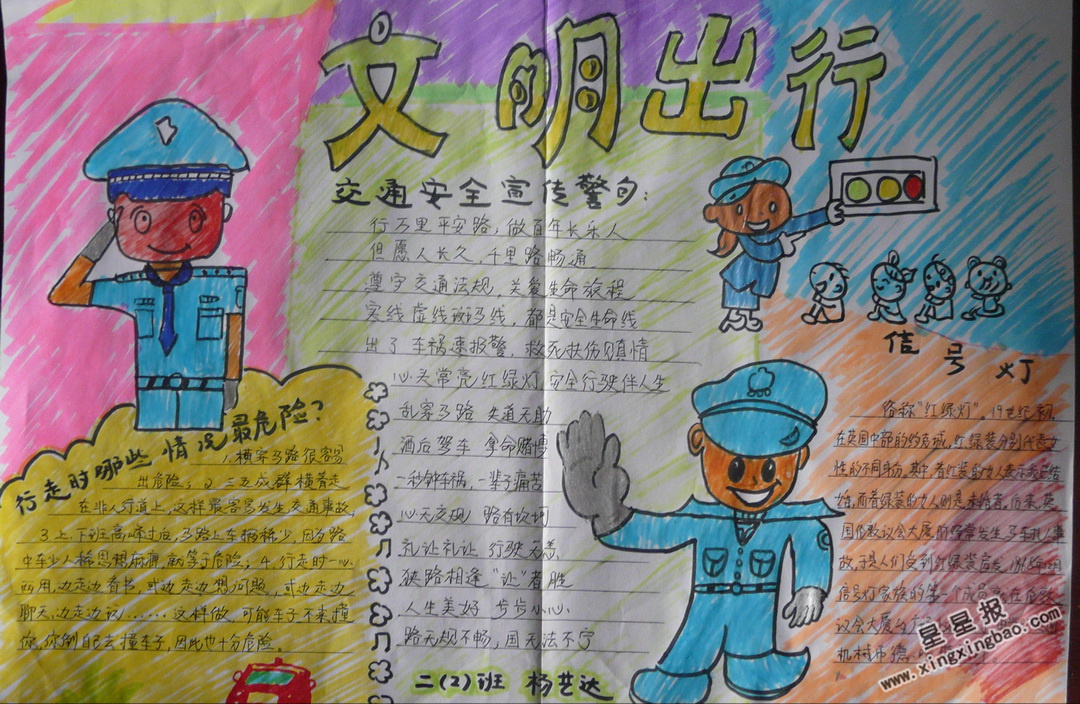 文明出行
交通安全宣传警句：
行万里平安路，做百年长乐人
但愿人长久，千里路畅通
遵守交通法规，关爱生命旅程
实线虚线斑马线，都是安全生命线
出了车祸速报警，救死扶伤见真情
心头常亮红绿灯，安全行驶伴人生
乱穿马路 失道无助
酒后驾车 拿命赌博
一秒钟车祸，一辈子痛苦
心无交规 路有坎坷
礼让礼让 行驶无恙
狭路相逢“让”者胜
人生美好 步步小心
路无规不畅，国无法不宁
二（2）班 杨艺达
行走时哪些情况最危险？
1、横穿马路很容易
出危险；2、三五成群横着走
在非人行道上，这样最容易发生交通事故，
3、上、下班高峰过后，马路上车辆稀少，因为路
中车少人稀思想麻痹，就等于危险；4、行走时一心
两用，边走边看书，或边走边想问题，或边走边
聊天，边走边玩……这样做，可能车子不来撞
你，你倒自己去撞车子，因此也十分危险。
信号灯
俗称“红绿灯”。19世纪初，
在英国中部的约克城，红绿装分别代表女
性的不同身份。其中着红装的女人表示我已结
婚，而着绿装的女人则是未婚者。后来，英
国伦敦议会大厦前经常发生马车轧人事
故，于是人们受到红绿装启发，
信号灯家族的第一个成员就在伦敦
议会大厦的广
机械师德
星星报
www.xingxingbao.com